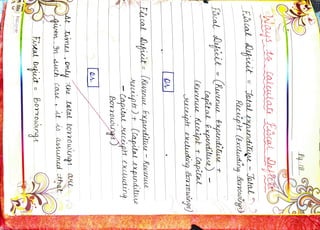 Pg. 18
Ways to calculate Fiscal Deficit
Fiscal Deficit = Total expenditure - Total
Receipts (excluding borrowings)
Fiscal Deficit = (Revenue Expenditure +
Capital Expenditure) -
(Revenue Receipt + Capital
Receipts excluding borrowings)
or
Fiscal Deficit = (Revenue Expenditure - Revenue
receipts) + (Capital expenditure
- Capital receipts excluding
borrowings)
or
At times, only the total borrowings are
given. In such case, it is assumed that
Fiscal Deficit = Borrowings